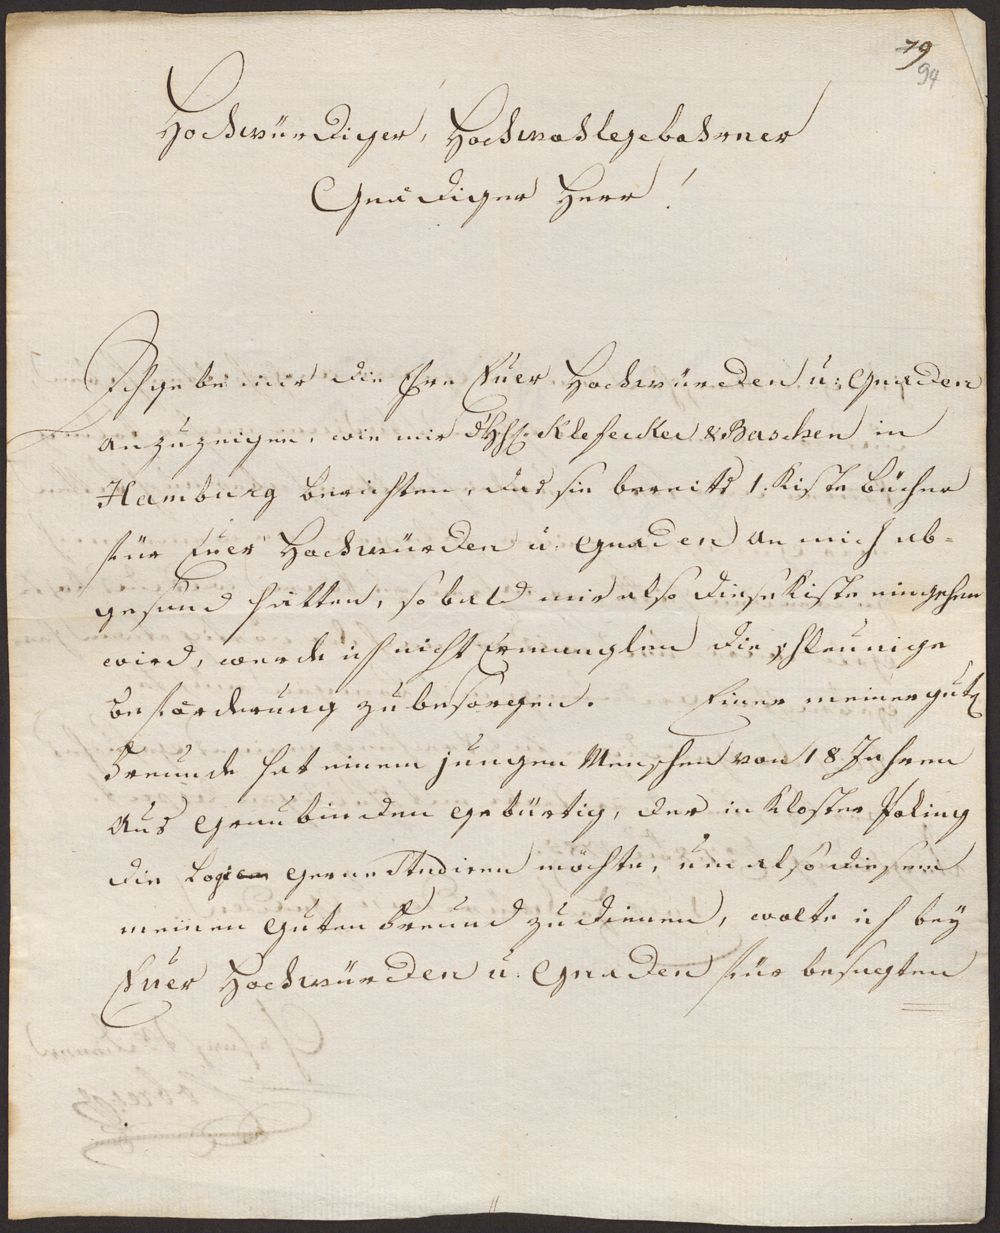 79
94
Hochwürdiger, Hochwohlgebohrner
Gnädiger Herr!
Ich gebe mir die Ehre Euer Hochwürden u: Gnaden
anzuzeigen, wie mir d'HH. Klefecker & Baschen in
Hamburg berichten, das sie bereits 1. Kiste Bücher
für Euer Hochwürden u. Gnaden an mich ab-
gesand hatten, so bald mir also diese Kiste eingehen
wird, werde ich nicht Ermanglen die schleunige
Beförderung zu besorgen. Einer meiner gut
Freunde hat einem jungen Menschen von 18 Jahren
aus Graubinden gebürtig, der in Kloster Poling
die Logic gerne Studiren möchte, um also diesem
meinen guten Freund zu dienen, wolte ich bey
Euer Hochwürden u. Gnaden für besagten